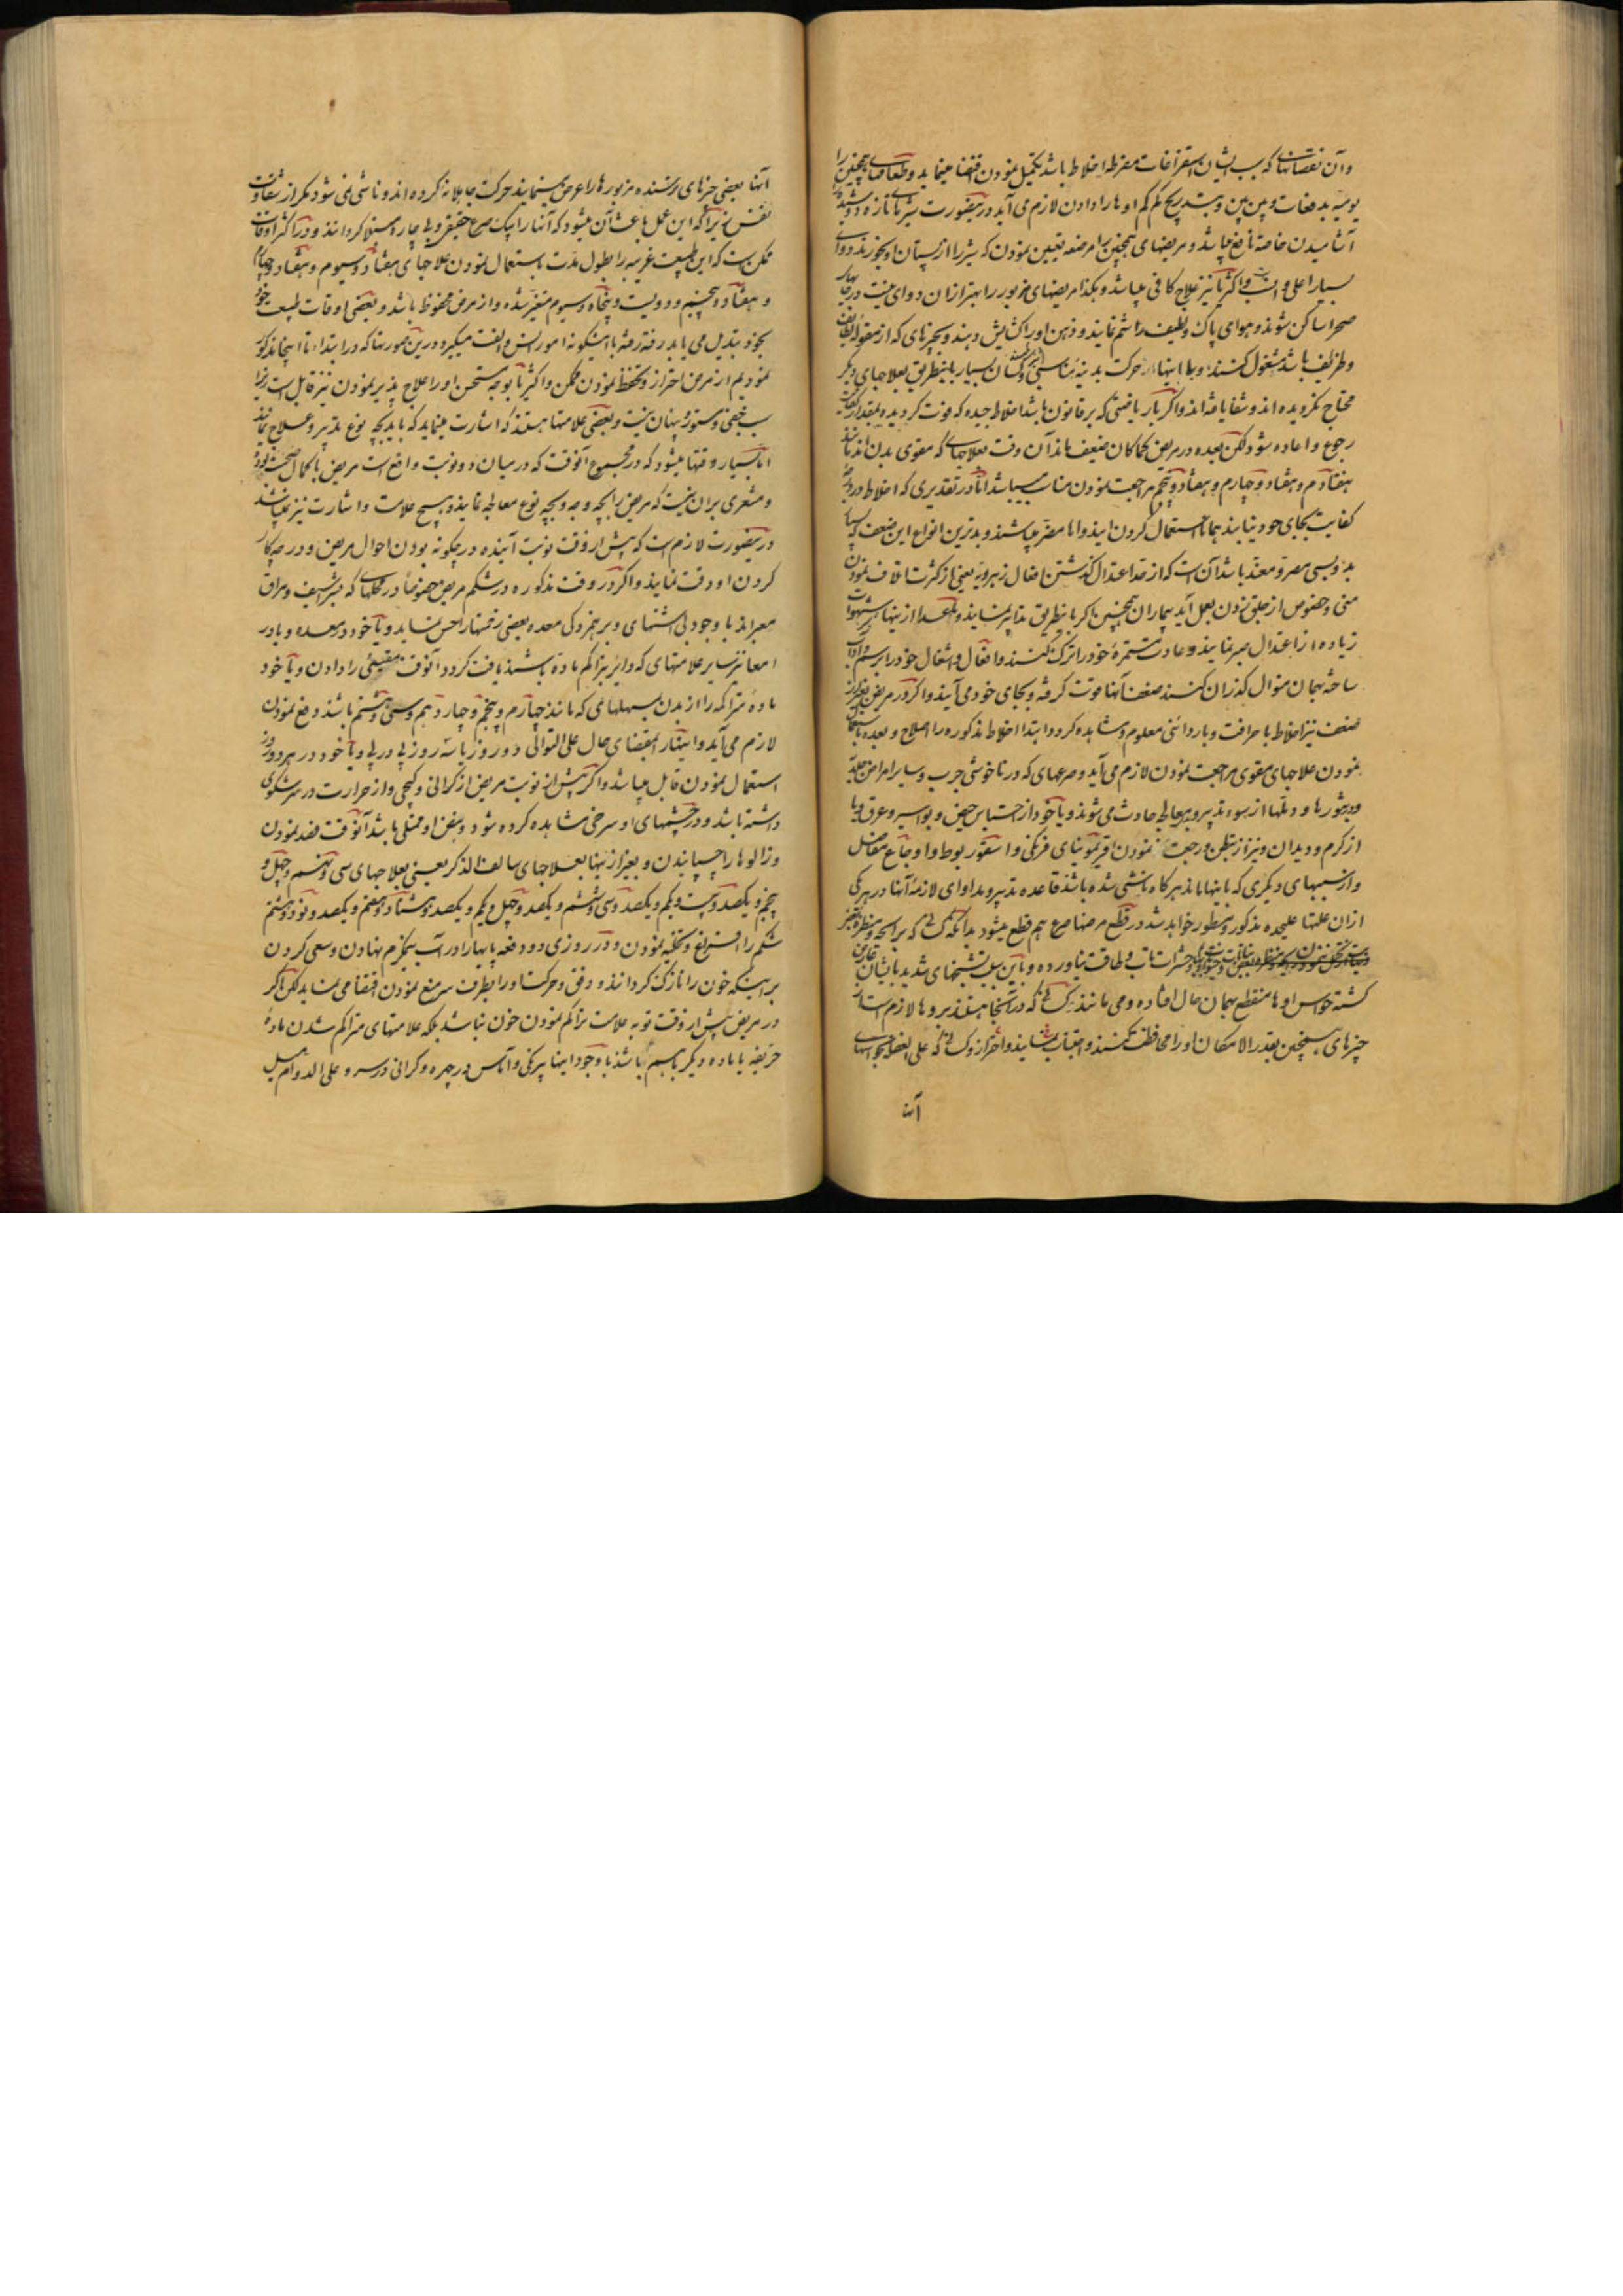 وآن نقصانها که بسبب ایشان استفراغات مفرطه اخلاط باشد تکمیل نمودن اقتضا مینماید وطعامهای همچنین را
یومیه بدفعات وپس پس وبتدریج کم کم اوها را دادن لازم می آید درینصورت شیرهای تازه دوشیده
آشامیدن خاصة نافع میباشد ومریضهای همچنین را مرضعه تعیین نمودن که شیر را از پستان او بخورند دوای
بسیار اعلی و واکثریا نیز علاج کافی میباشد وبکذا مریضهای مزبور را بهتر از آن دوای نیست در
صحرا ساکن شوند وهوای پاک ولطیف را شم نمایند وذهن اورا کشایش دهند وبچیزهای که از مقوله لطایف
وظرایف باشد مشغول کنند وبا اینها از حرکت بدنیه مناسبی کسان بسیار باینطریق بعلاجهای دیگر
محتاج نگردیده اند وشفا یافته اند واگر بار یاضتی که بر قانون باشد اخلاط جیده که فوت گردیده بمقدار کفایت
رجوع واعاده شود لکن بعده در مریض کماکان ضعیف ماند آن وقت بعلاجهای که مقوی بدن اند مانند
هفتادم وهفتاد وچهارم وهفتاد وپنجم مراجعت نمودن مناسب میباشد اما در تقدیری که اخلاط در
کفایت بجای خود نیایند همانا استعمال کردن ایذا واما مضر میباشند وبدترین انواع این ضعف که
بدوبسی مصر ومعند باشد آن است که از حد اعتدال گذشتن افعال زهرویه یعنی از کثرت اتلاف نمودن
منی وخصوص از جلق زدن بعمل آید بیماران همچنین اگر باینطریق تدابیر نمایند وبعد از اینها شهوات
زیاده از اعتدال صبر نمایند وعادت مستمرۀ خود را ترک کنند وافعال واشغال خود را برسم وآداب
ساخته بهمان منوال گذران کنند ضعف آنها قوت گرفته وبجای خود می آیند واگر در مریض بغیر از
ضعف نیز اخلاط با حرافت وبا ردائتی معلوم ومشاهده گردد ابتدا اخلاط مذکوره را اصلاح وبعده باستعمال
نمودن علاجهای مقوی مراجعت نمودن لازم می آید وصرعهای که در ناخوشی جرب وسایر امراض جلدیه
وبثورها ودملها از سوء تدبیر وبیمعالجه حادث می شوند ویا خود از احتباس حیض وبواسیر وعرق ویا
از کرم ودیدان ونیز از تبطن ورجعت نمودن افریمونیای فرنگی واسقوربوط واوجاع مفاصل
واز سببهای دیگری که باینها مانند هر گاه ناشی شده باشد قاعده تدبیر ومداوای لازمۀ آنها در هر یکی
ازان علتها علیحده مذکور ومسطور خواهد شد در قطع مرضها صرع هم قطع میشود بدانکه کسانی که برایحه ومنظره بعضی چیز
حشرات تاب وطاقت نیاورده وباین سبب تشنجهای شدید بایشان عارض
گشته حواس اوها منقطع بهمان حال افتاده ومی مانند کسانی که در آنجا هستند بروها لازم است از
چیزهای همچنین بقدر الامکان اورا محافظت کنند واجتناب نمایند واحتراز وکسانی که علی الغفله بحواسهای
آنها
آنها بعضی چیزهای ترسنده مزبورها را عرض مینمایند حرکت جاهلانه کرده اند وناشی نمی شود مگر از شقاوت
نفس زیرا که این عمل باعث آن میشود که آنها را بیک صرع حقیقی وبی چاره مبتلا گردانند ودر اکثر اوقات
ممکن است که این طبیعت غریبه را بطول مدت باستعمال نمودن علاجهای هفتاد وسیوم وهفتاد وچهارم
وهفتاد وپنجم ودویست وپنجاه وسیوم متغیر شده واز مرض محفوظ باشد وبعضی اوقات طبیعت خود
بخود تبدیل می یابد رفته رفته باینگونه امور انس والفت میگیرد ودرین صورتها که در ابتداء تا اینجا مذکور
نمودیم از مرض احتراز وتحفظ نمودن ممکن واکثریا بوجه مستحسن اورا علاج پذیر نمودن نیز قابل است زیرا
سبب خفی ومستور وپنهان نیست وبعضی علامتها هستند که اشارت مینماید که باید بچه نوع تدبیر وعلاج نمایند
اما بسیار وقتها میشود که در مجموع آنوقت که در میان دو نوبت واقع است مریض با کمال صحت بوده
ومشعری بران نیست که مریض را بچه وجه وبچه نوع معالجه نمایند وهیچ علامت واشارت نیز نمیباشد
درینصورت لازم است که پیش از وقت نوبت آینده در چگونه بودن احوال مریض ودر چه کار
کردن او دقت نمایند واگر در وقت مذکوره در شکم مریض خصوصا در محلهای که شراسیف ومراق
معبراند با وجود بی اشتهای وبرهمزدکی معده بعضی زخمها را حس نماید ویا خود در معده ویا در
امعا نیز سایر علامتهای که دایر بتراکم ماده باشند یافت گردد آنوقت مقیئی را دادن ویا خود
مادۀ متراکمه را از بدن بمسهلهای که مانند چهارم وپنجم وچهاردهم وسی وهشتم باشند دفع نمودن
لازم می آید واینقدر بمقتضای حال علی التوالی دو روز یا سه روز پی در پی ویا خود در هر دو روز
استعمال نمودن قابل میباشد واگر پیش از نوبت مریض از گرانی وگیجی واز حرارت در سر شکوی
داشته باشد ودر چشمهای او سرخی مشاهده کرده شود ونبض او ممتلی باشد آنوقت فصد نمودن
وزالوها را چسپانیدن وبغیر از اینها بعلاجهای سالف الذکر یعنی بعلاجهای سی ونهم وچهل و
پنجم ویکصد وبیست ویکم ویکصد وسی وششم ویکصد وچهل ویکم ویکصد وهشتاد وهفتم ویکصد ونود وهشتم
شکم را استفراغ وتخلیه نمودن ودر روزی دو دفعه پایهارا در آب نیمگرم نهادن وسعی کردن
بر اینکه خون را نازک گردانند ودفق وحرکت اورا بطرف سر منع نمودن اقتضا می نماید لکن اگر
در مریض پیش از وقت توبه علامت تراکم نمودن خون نباشد بلکه علامتهای متراکم شدن مادۀ
حریفه یا ماده دیگر باشد با وجود اینها پرکی وآماس در چهره وگرانی در سر وعلی الدوام میل